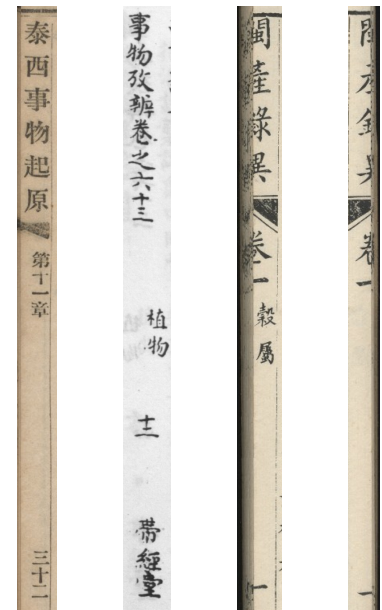 泰西事物起原 第十一章 三十二
事物攷辨卷之六十三 植物 十三 帶經堂
閩產錄異 卷一 穀屬 一
閩產錄異 卷一 一